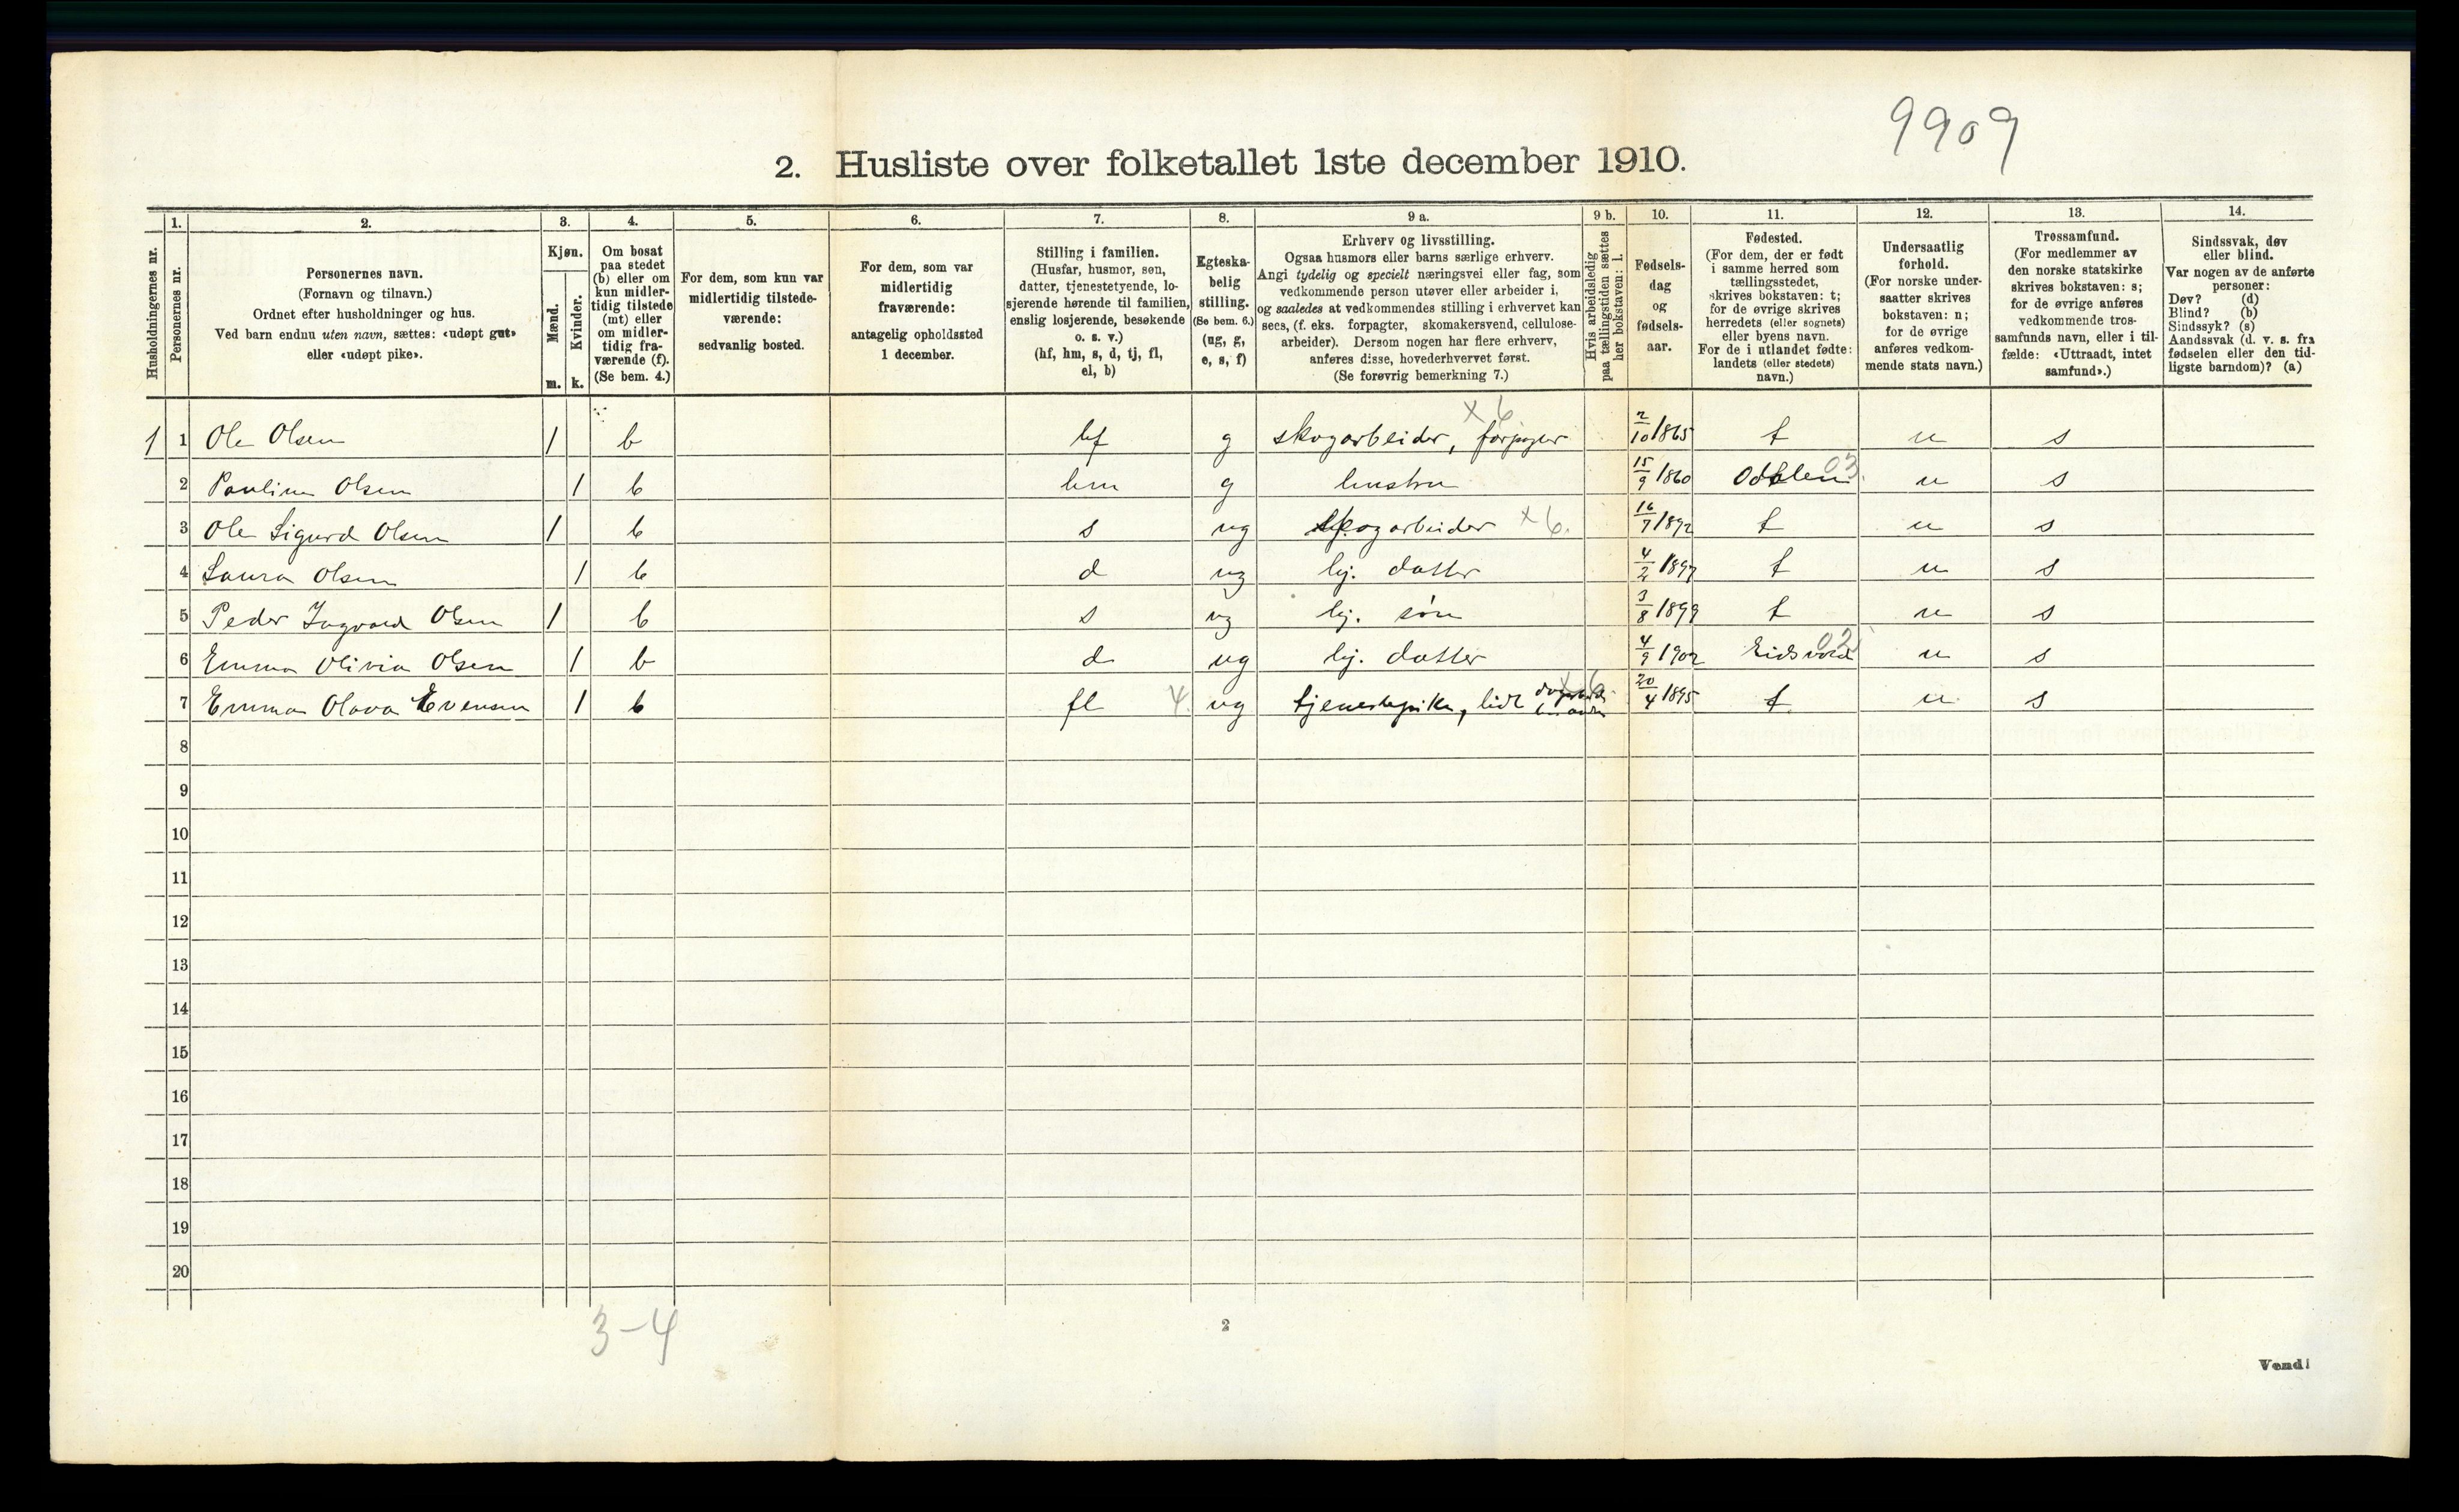 9909
2. Husliste over folketallet 1ste december 1910.
Husholdningernes nr.
1.
Personernes nr.
2.
Personernes navn.
(Fornavn og tilnavn.)
Ordnet efter husholdninger og hus.
Ved barn endnu uten navn, sættes: «udøpt gut»
eller «udøpt pike».
3.
Kjøn.
Mænd.
Kvinder.
m. k.
4.
Om bosat
paa stedet
(b) eller om
kun midler-
tidig tilstede
(mt) eller
om midler-
tidig fra-
værende (f).
(Se bem. 4.)
5.
For dem, som kun var
midlertidig tilstede-
værende:
sedvanlig bosted.
6.
For dem, som var
midlertidig
fraværende:
antagelig opholdssted
1 december.
7.
Stilling i familien.
(Husfar, husmor, søn,
datter, tjenestetyende, lo-
sjerende hørende til familien,
enslig losjerende, besøkende
o. s. v.)
(hf, hm, s, d, tj, fl,
el, b)
8.
Egteska-
belig
stilling.
(Se bem. 6.)
(ug, g,
e, s, f)
9 a.
Erhverv og livsstilling.
Ogsaa husmors eller barns særlige erhverv.
Angi tydelig og specielt næringsvei eller fag, som
vedkommende person utøver eller arbeider i,
og saaledes at vedkommendes stilling i erhvervet kan
sees, (f. eks. forpagter, skomakersvend, cellulose-
arbeider). Dersom nogen har flere erhverv,
anføres disse, hovederhvervet først.
(Se forøvrig bemerkning 7.)
9 b.
Hvis arbeidsledig
paa tællingstiden sættes
her bokstaven: l.
10.
Fødsels-
dag
og
fødsels-
aar.
11.
Fødested.
(For dem, der er født
i samme herred som
tællingsstedet,
skrives bokstaven: t;
for de øvrige skrives
herredets (eller sognets)
eller byens navn.
For de i utlandet fødte:
landets (eller stedets)
navn.)
12.
Undersaatlig
forhold.
(For norske under-
saatter skrives
bokstaven: n;
for de øvrige
anføres vedkom-
mende stats navn.)
13.
Trossamfund.
(For medlemmer av
den norske statskirke
skrives bokstaven: s;
for de øvrige anføres
vedkommende tros-
samfunds navn, eller i til-
fælde: «Uttraadt, intet
samfund».)
14.
Sindssvak, døv
eller blind.
Var nogen av de anførte
personer:
Døv? (d)
Blind? (b)
Sindssyk? (s)
Aandssvak (d. v. s. fra
fødselen eller den tid-
ligste barndom)? (a)
1 1 Ole Olsen 1 b hf g skogarbeider, x6 2/10 1865 t n s
2 Pauline Olsen 1 b hm g hustru 15/9 1860 Odalen 03. n s
3 Ole Sigurd Olsen 1 b s ug skogarbeider x6. 16/7 1892 t n s
4 Laura Olsen 1 b d ug hj. datter 4/2 1897 t n s
5 Peder Ingvard Olsen 1 b s ug hj. søn 3/8 1899 t n s
6 Emma Olivia Olsen 1 b d ug hj. datter 4/9 1902 Eidsvold 02 n s
7 Emma Olava Evensen 1 b fl 4. ug tjenestepike, lidt x6 20/4 1895 t n s
8
9
10
11
12
13
14
15
16
17
18
19
20
3-4
2
Vend!